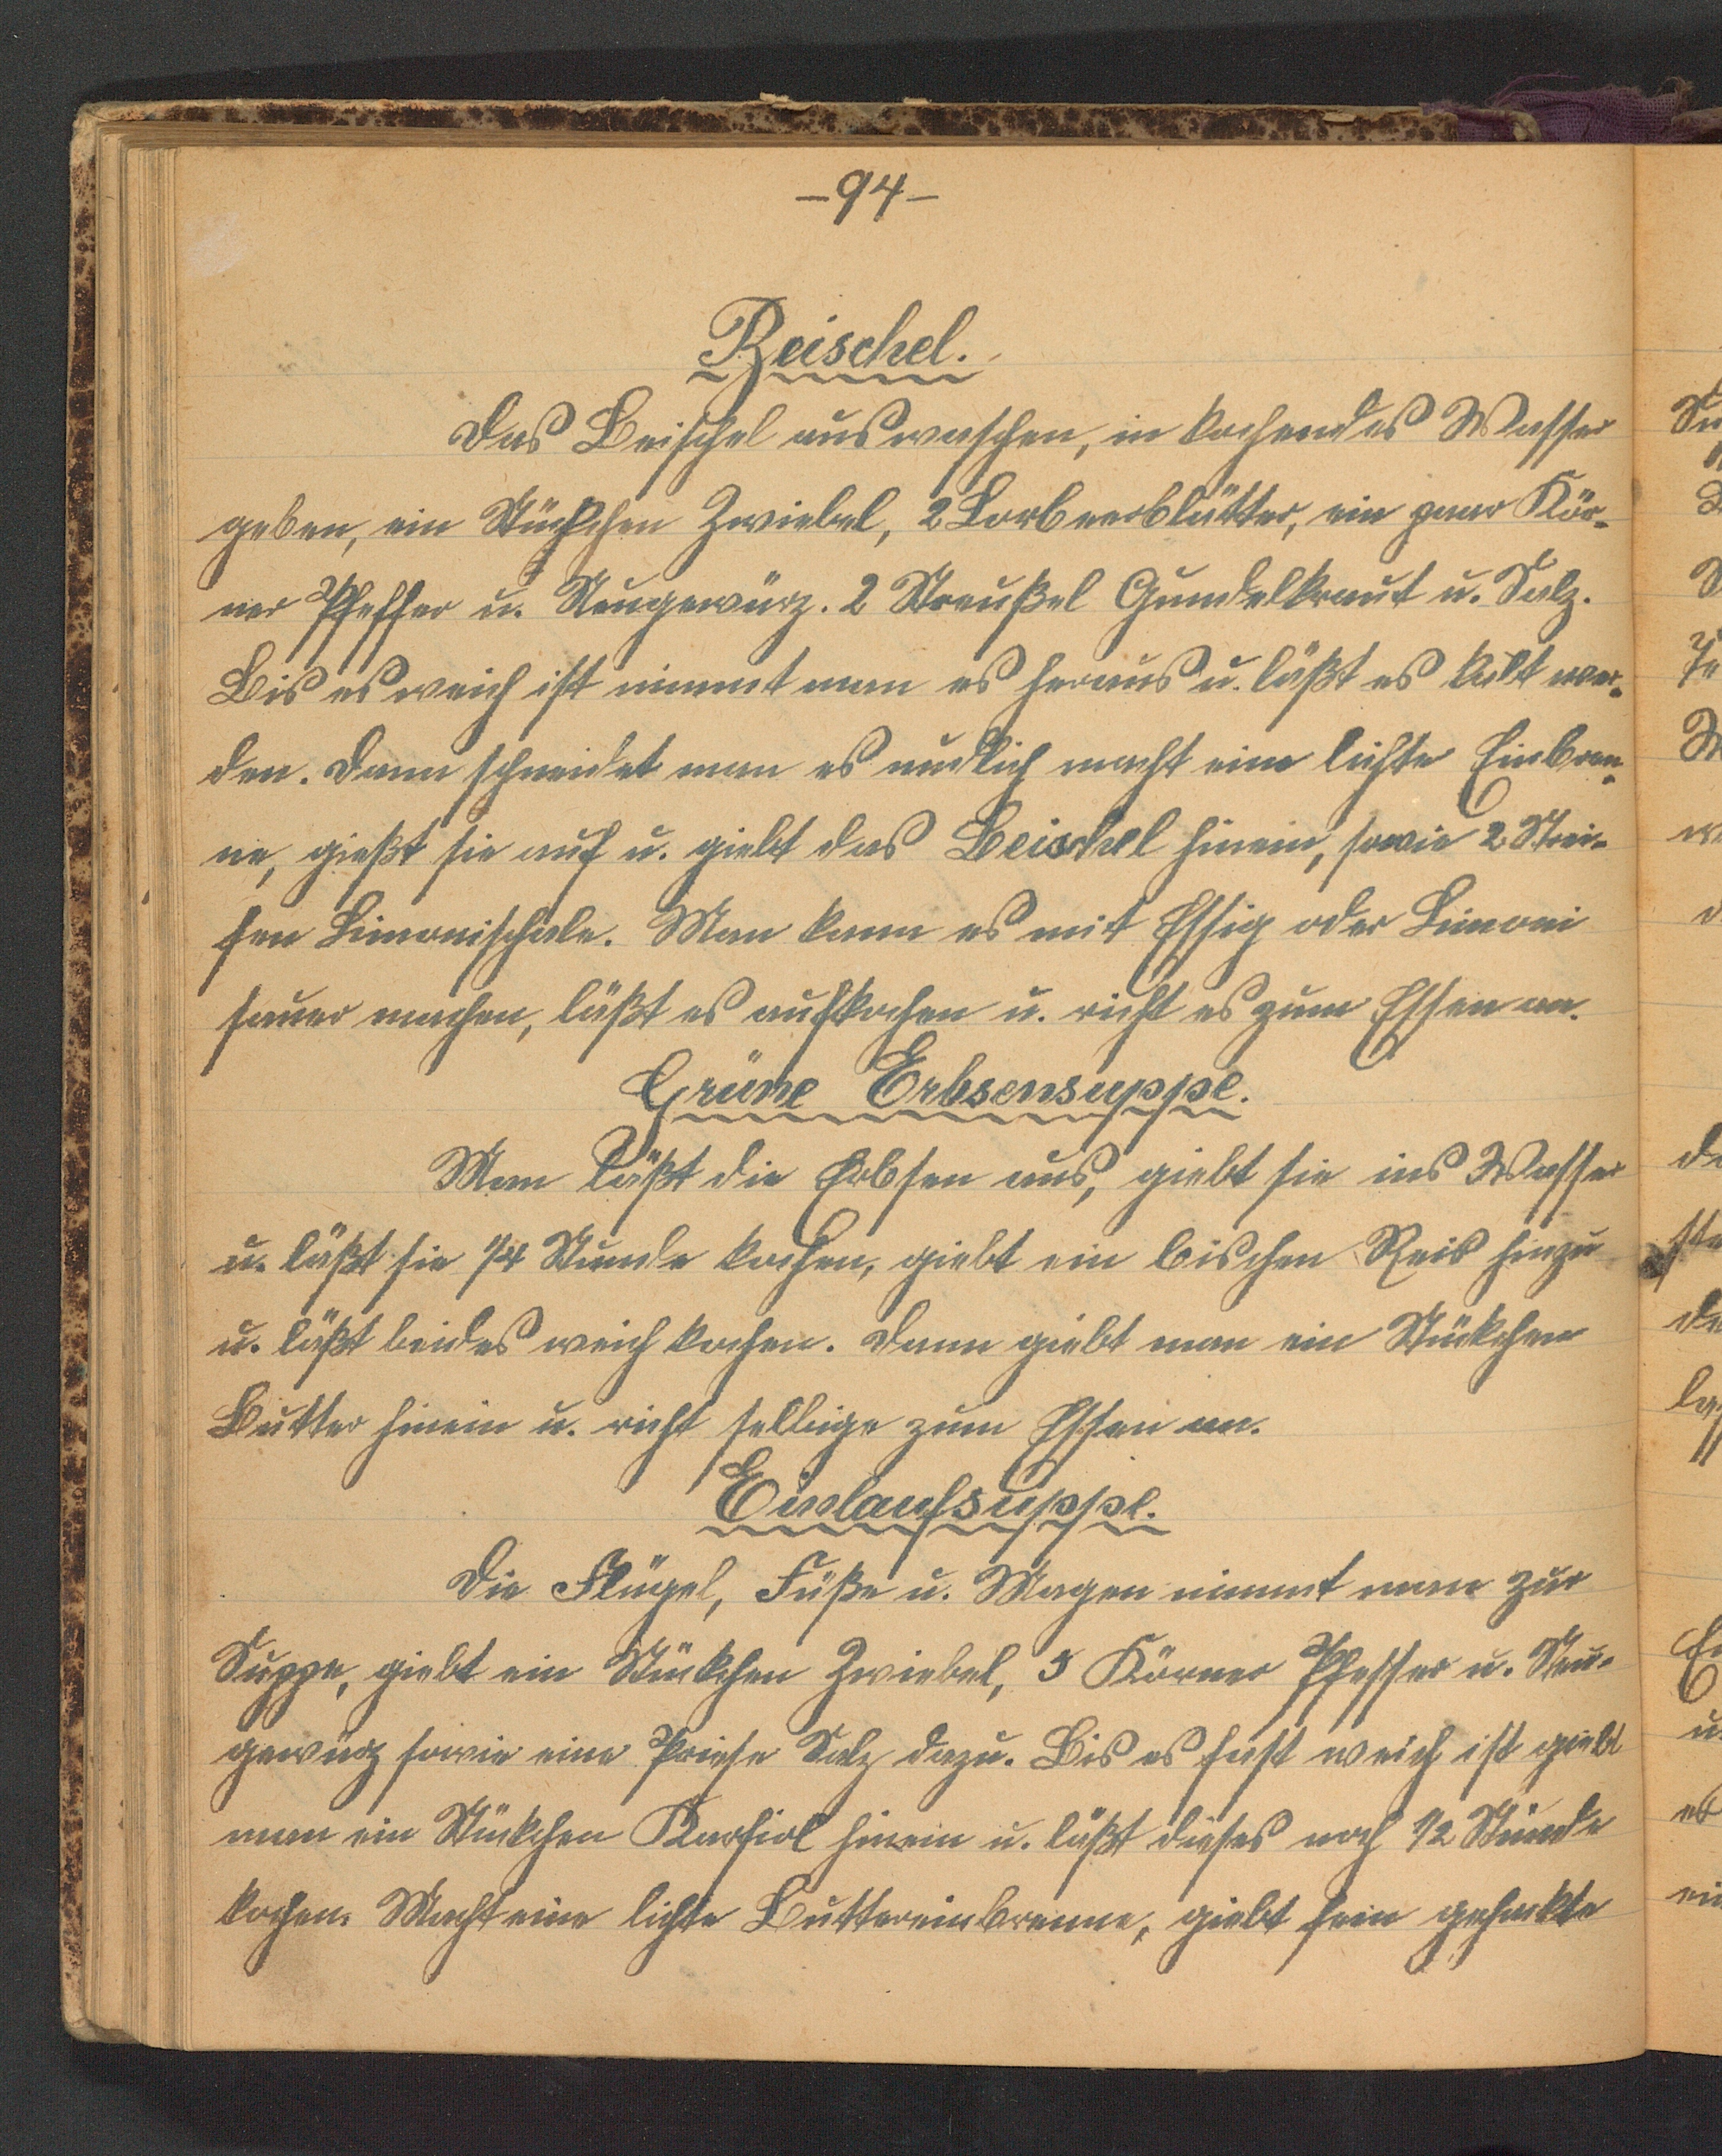 -94-
Beischel.
Das Beischel auswaschen, in kochendes Wasser
geben, ein Stückchen Zwiebel, 2 Lorbeerblätter, ein paar Kör-
ner Pfeffer u. Neugewürz. 2 Streußel Gundelkraut u. Salz.
Bis es weich ist nimmt man es heraus u. läßt es kalt wer-
den. Dann schneidet man es nudlich macht eine lichte Einbren-
ne, gießt sie auf u. giebt das Beischel hinein, sowie 2 Strei-
fen Limonischale. Man kann es mit Essig oder Limoni
sauer machen, läßt es aufkochen u. richt es zum Essen an.
Grüne Erbsensuppe.
Man läßt die Erbsen aus, giebt sie ins Wasser
u. läßt sie 1/4 Stunde kochen, giebt ein bischen Reis hinzu
u. läßt beides weich kochen. Dann giebt man ein Stückchen
Butter hinein u. richt selbige zum Essen an.
Einlaufsuppe.
Die Flügel, Füße u. Magen nimmt man zur
Suppe, giebt ein Stückchen Zwiebel, 5 Körner Pfeffer u. Neu-
gewürz sowie eine Priese Salz dazu. Bis es fast weich ist giebt
man ein Stückchen Karfiol hinein u. läßt dieses noch 1/2 Stunde
kochen. Macht eine lichte Buttereinbrenne, giebt fein gehackte